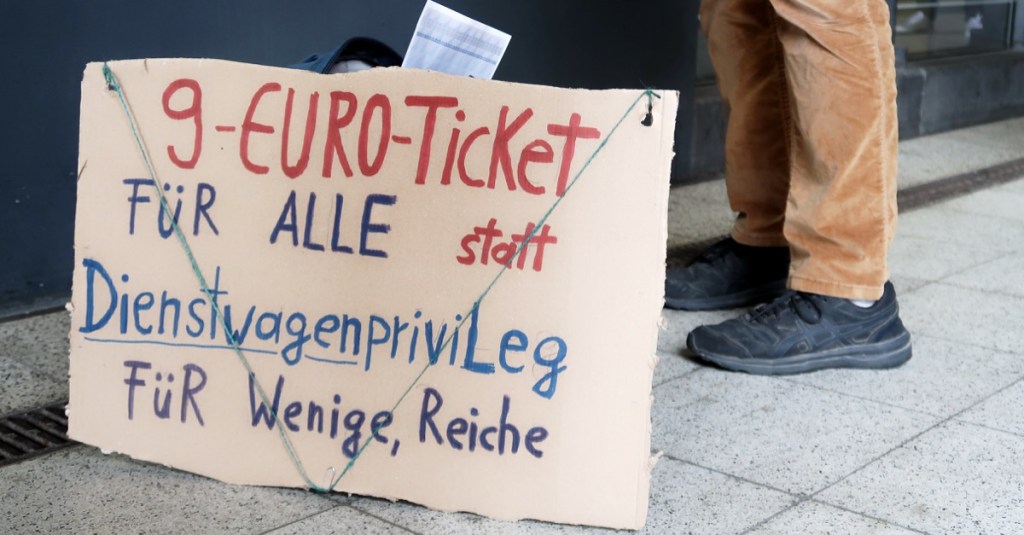 9-EURO-TICKET
FÜR ALLE statt
DienstwagenpriviLeg
FÜR Wenige, Reiche